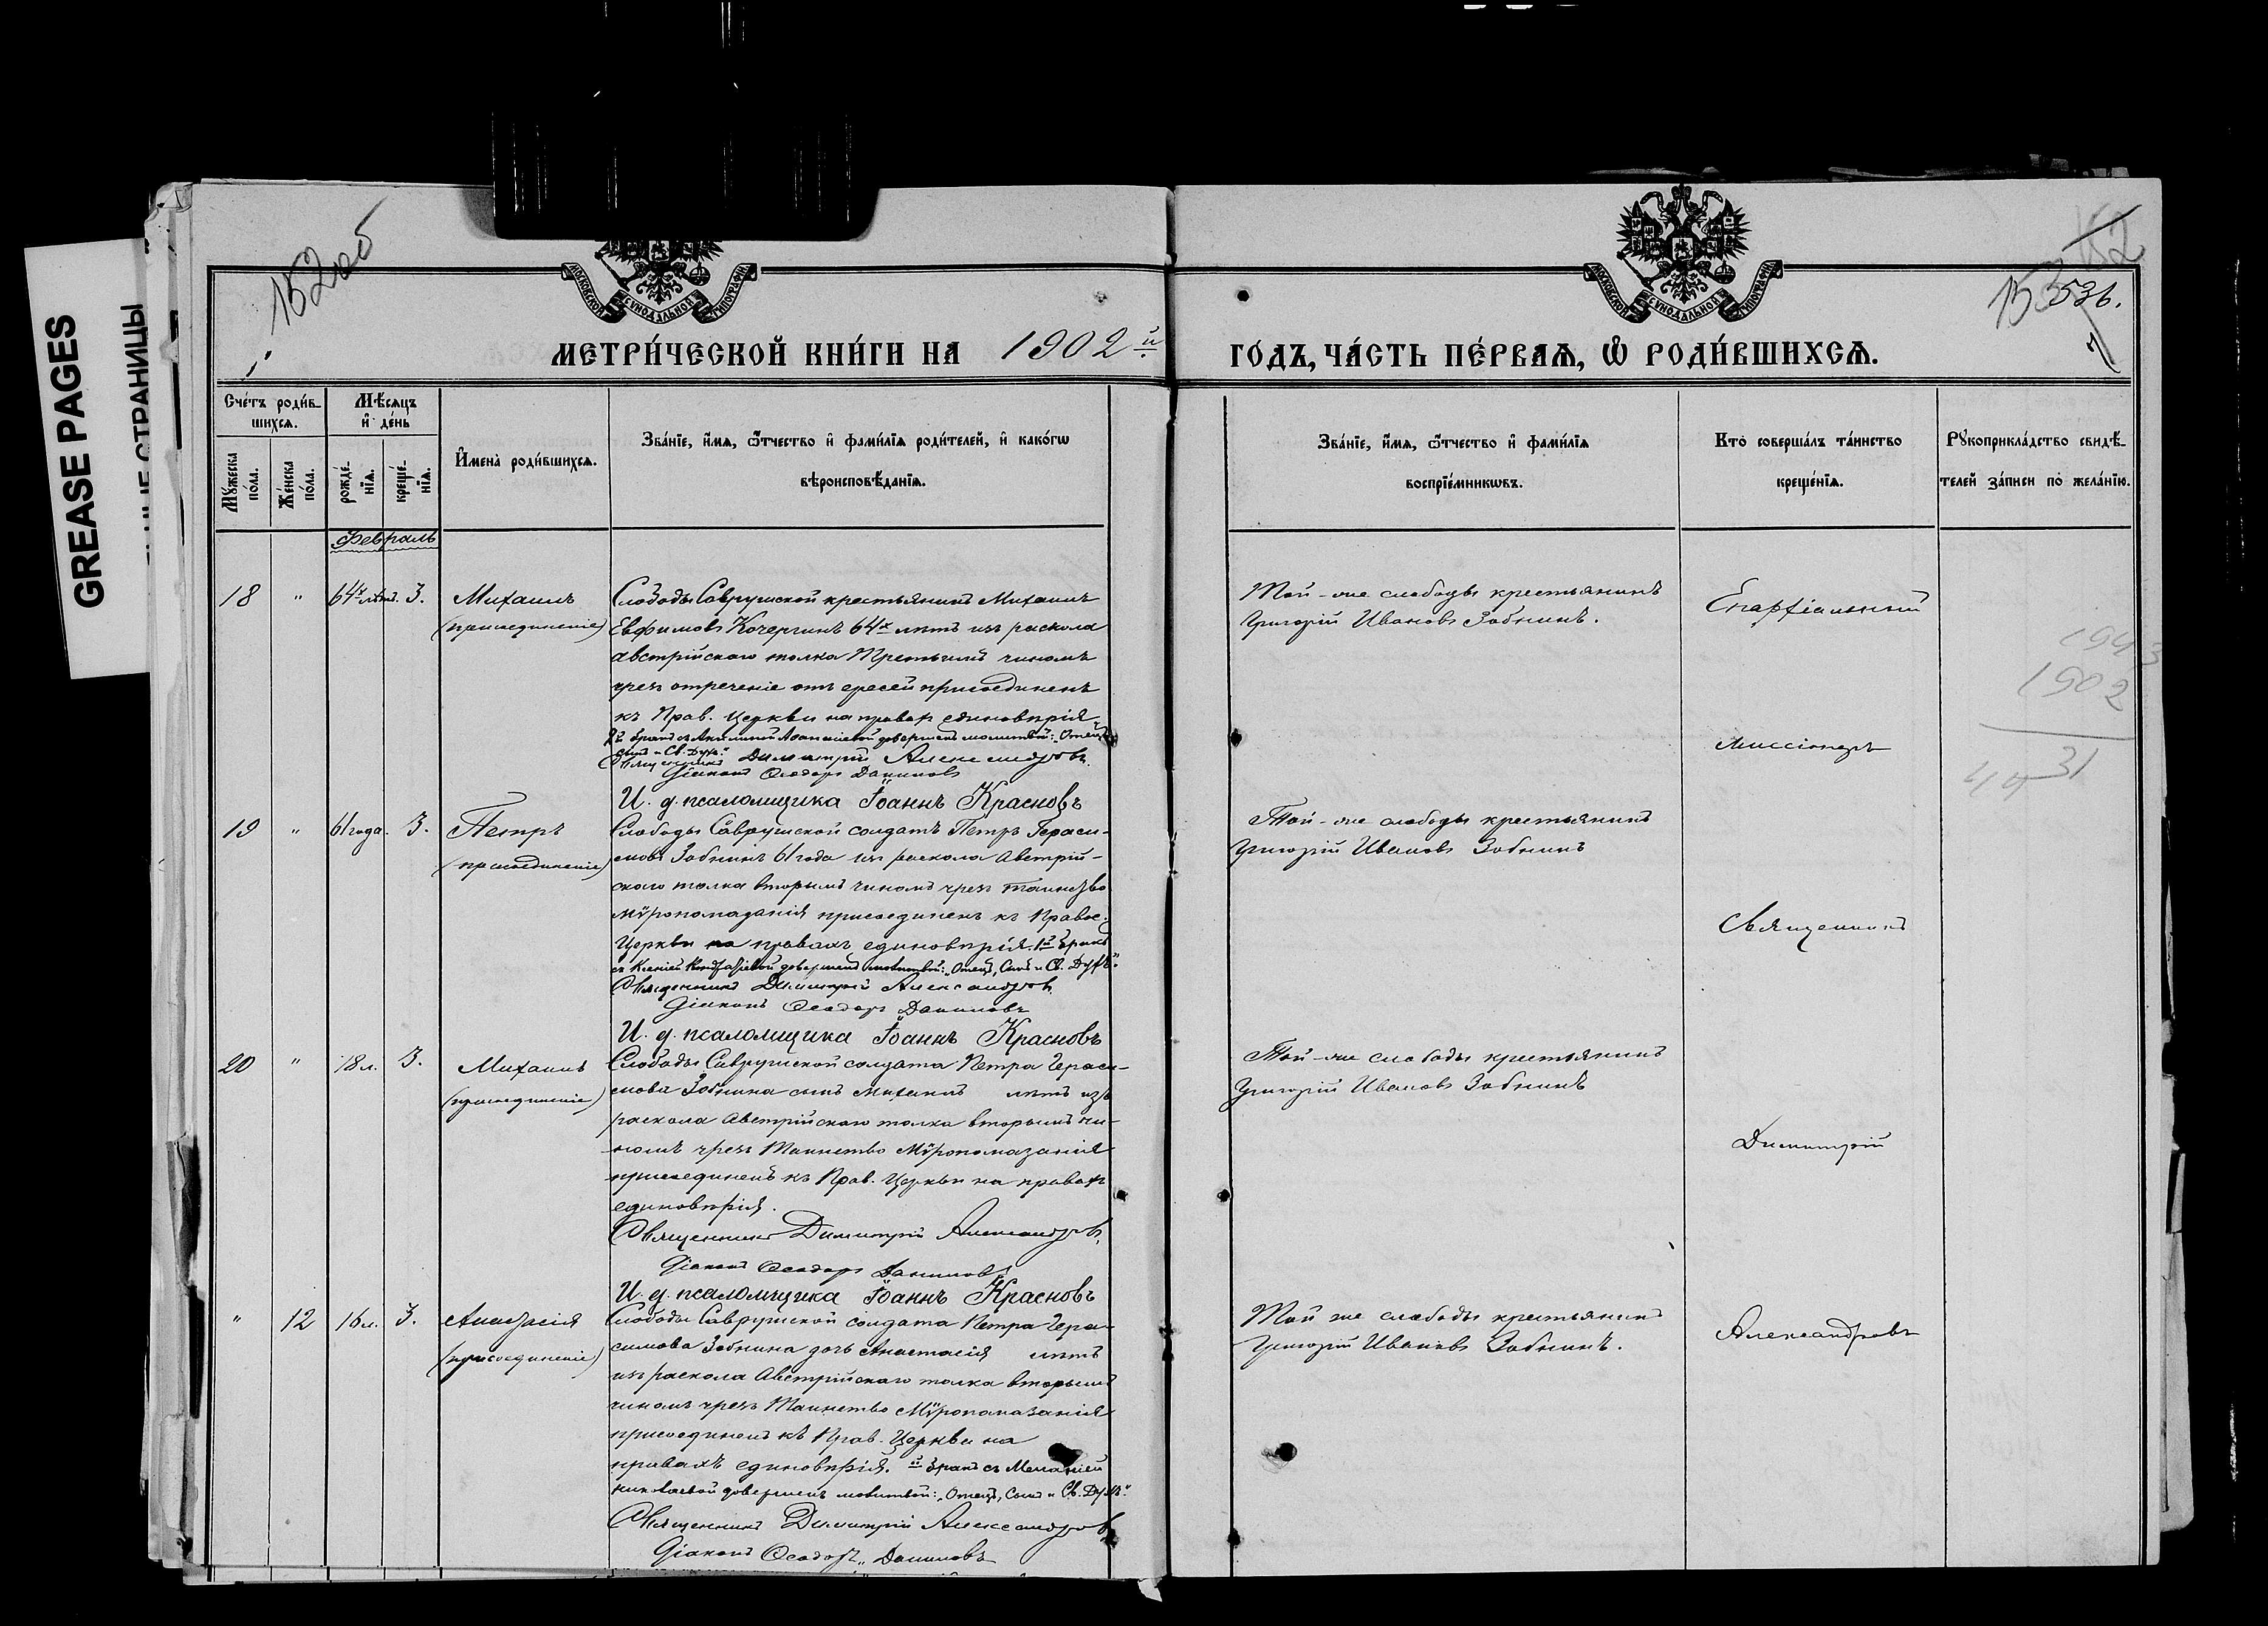 GREASE PAGES
СТРАНИЦЫ
152об
536.
МОСКОВСКОЙ СѴНОДАЛЬНОЙ ТИПОГРАФІИ
МОСКОВСКОЙ СѴНОДАЛЬНОЙ ТИПОГРАФІИ
МЕТРИ́ЧЕСКОЙ КНИ́ГИ НА 1902й
ГОДЪ, ЧА́СТЬ ПЕ́РВАѦ, Ѡ РОДИ́ВШИХСѦ.
Сче́тъ роди́в-
шихсѧ.
Мѣ́сяцъ
и де́нь
Мꙋ́жеска по́ла.
Же́нска по́ла.
рожде́-нїѧ.
креще́-нїѧ.
Имена̀ роди́вшихсѧ.
Зва́нїе, и́мѧ, ѻ́тчество и фами́лїѧ роди́телей, и како́гѡ
вѣроисповѣ́данїѧ.
Зва́нїе, и́мѧ, ѻ́тчество и фами́лїѧ
воспрїе́мникѡвъ.
Кто̀ соверша́лъ та́инство
креще́нїѧ.
Рꙋкоприкла́дство свидѣ́-
телей за́писи по жела́нїю.
Февраль
18 " 64х лѣтъ. 3. Михаилъ
(присоединеніе)
Слободы Саврушской крестьянинъ Михаилъ
Евфимовъ Кочергинъ 64х лѣтъ изъ раскола
австрійскаго толка Третьимъ чиномъ
чрезъ отреченіе отъ ересей присоединенъ
къ Прав. Церкви на правах единовѣрія
бракъ съ Акилиной Аѳанасіевой довершенъ молитвой: „Отецъ,
Сынъ и Св. Духъ."
Священникъ Димитрій Александровъ.
Діаконъ Ѳеодоръ Даниловъ
И. д. псаломщика Іоаннъ Красновъ
Той-же слободы крестьянинъ
Григорій Ивановъ Зобнинъ.
Епархіальный
1943
1902
31
миссіонеръ
19 " 61 года. 3. Петръ
(присоединеніе)
Слободы Саврушской солдатъ Петръ Гераси-
мовъ Зобнинъ 61 года изъ раскола Австрій-
скаго толка вторымъ чиномъ чрезъ таинство
мѵропомазанія присоединенъ къ Правос.
Церкви на правахъ единовѣрія. 1й бракъ
съ Ксеніей Кондратіевой довершенъ молитвой: „Отецъ, Сынъ и Св. Духъ."
Священникъ Димитрій Александровъ
Діаконъ Ѳеодоръ Даниловъ
И. д. псаломщика Іоаннъ Красновъ
Той-же слободы крестьянинъ
Григорій Ивановъ Зобнинъ
Священникъ
20 " 18 л. 3. Михаилъ
(присоединеніе)
Слободы Саврушской солдата Петра Гераси-
мова Зобнина сынъ Михаилъ лѣтъ изъ
раскола Австрійскаго толка вторымъ чи-
номъ чрезъ Таинство Мѵропомазанія
присоединенъ къ Прав. Церкви на правах
единовѣрія.
Священникъ Димитрій Александровъ.
Діаконъ Ѳеодоръ Даниловъ
И. д. псаломщика Іоаннъ Красновъ
Той-же слободы крестьянинъ
Григорій Ивановъ Зобнинъ
Димитрій
" 12 16 л. 3. Анастасія
(присоединеніе)
Слободы Саврушской солдата Петра Гера-
симова Зобнина дочь Анастасія лѣтъ
изъ раскола Австрійскаго толка вторымъ
чиномъ чрезъ Таинство Мѵропомазанія
присоединена къ Прав. Церкви на
правахъ единовѣрія. й бракъ съ Меланіей
Николаевой довершенъ молитвой: „Отецъ, Сынъ и Св. Духъ".
Священникъ Димитрій Александровъ
Діаконъ Ѳеодоръ Даниловъ
Той же слободы крестьянинъ
Григорій Ивановъ Зобнинъ.
Александровъ